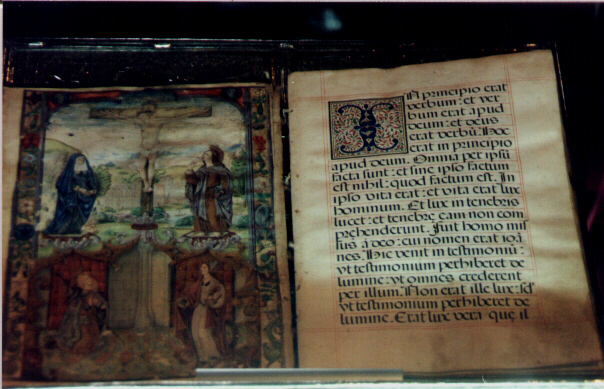 In principio erat
verbum: et ver
bum erat apud
deum: et deus
erat verbū: Hoc
erat in principio
apud deum. Omnia per ipsū
facta sunt: et sine ipso factum
est nihil: quod factum est. In
ipso vita erat: et vita erat lux
hominum. Et lux in tenebris
lucet: et tenebre eam non com
prehenderunt. Fuit homo mis
sus a deo: cui nomen erat ioā
nes. Hic venit in testimoniū:
vt testimonium perhiberet de
lumine: vt omnes crederent
per illum. Non erat ille lux: sed
vt testimonium perhiberet de
lumine. Erat lux vera que il